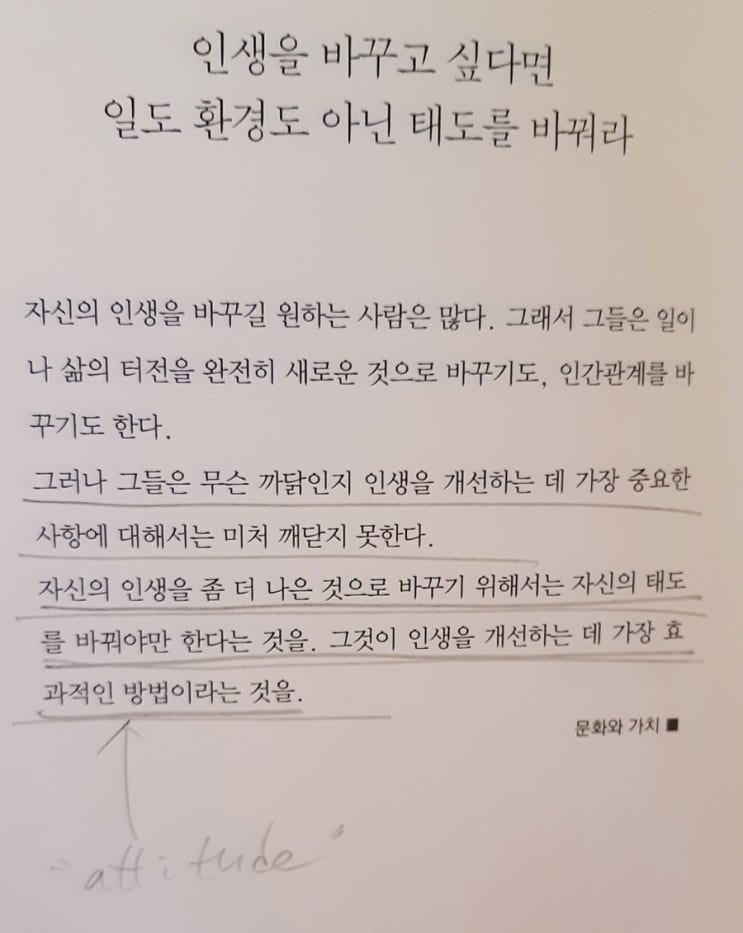 인생을 바꾸고 싶다면
일도 환경도 아닌 태도를 바꿔라
자신의 인생을 바꾸길 원하는 사람은 많다. 그래서 그들은 일이
나 삶의 터전을 완전히 새로운 것으로 바꾸기도, 인간관계를 바
꾸기도 한다.
그러나 그들은 무슨 까닭인지 인생을 개선하는 데 가장 중요한
사항에 대해서는 미처 깨닫지 못한다.
자신의 인생을 좀 더 나은 것으로 바꾸기 위해서는 자신의 태도
를 바꿔야만 한다는 것을. 그것이 인생을 개선하는 데 가장 효
과적인 방법이라는 것을.
문화와 가치 ■
"attitude"